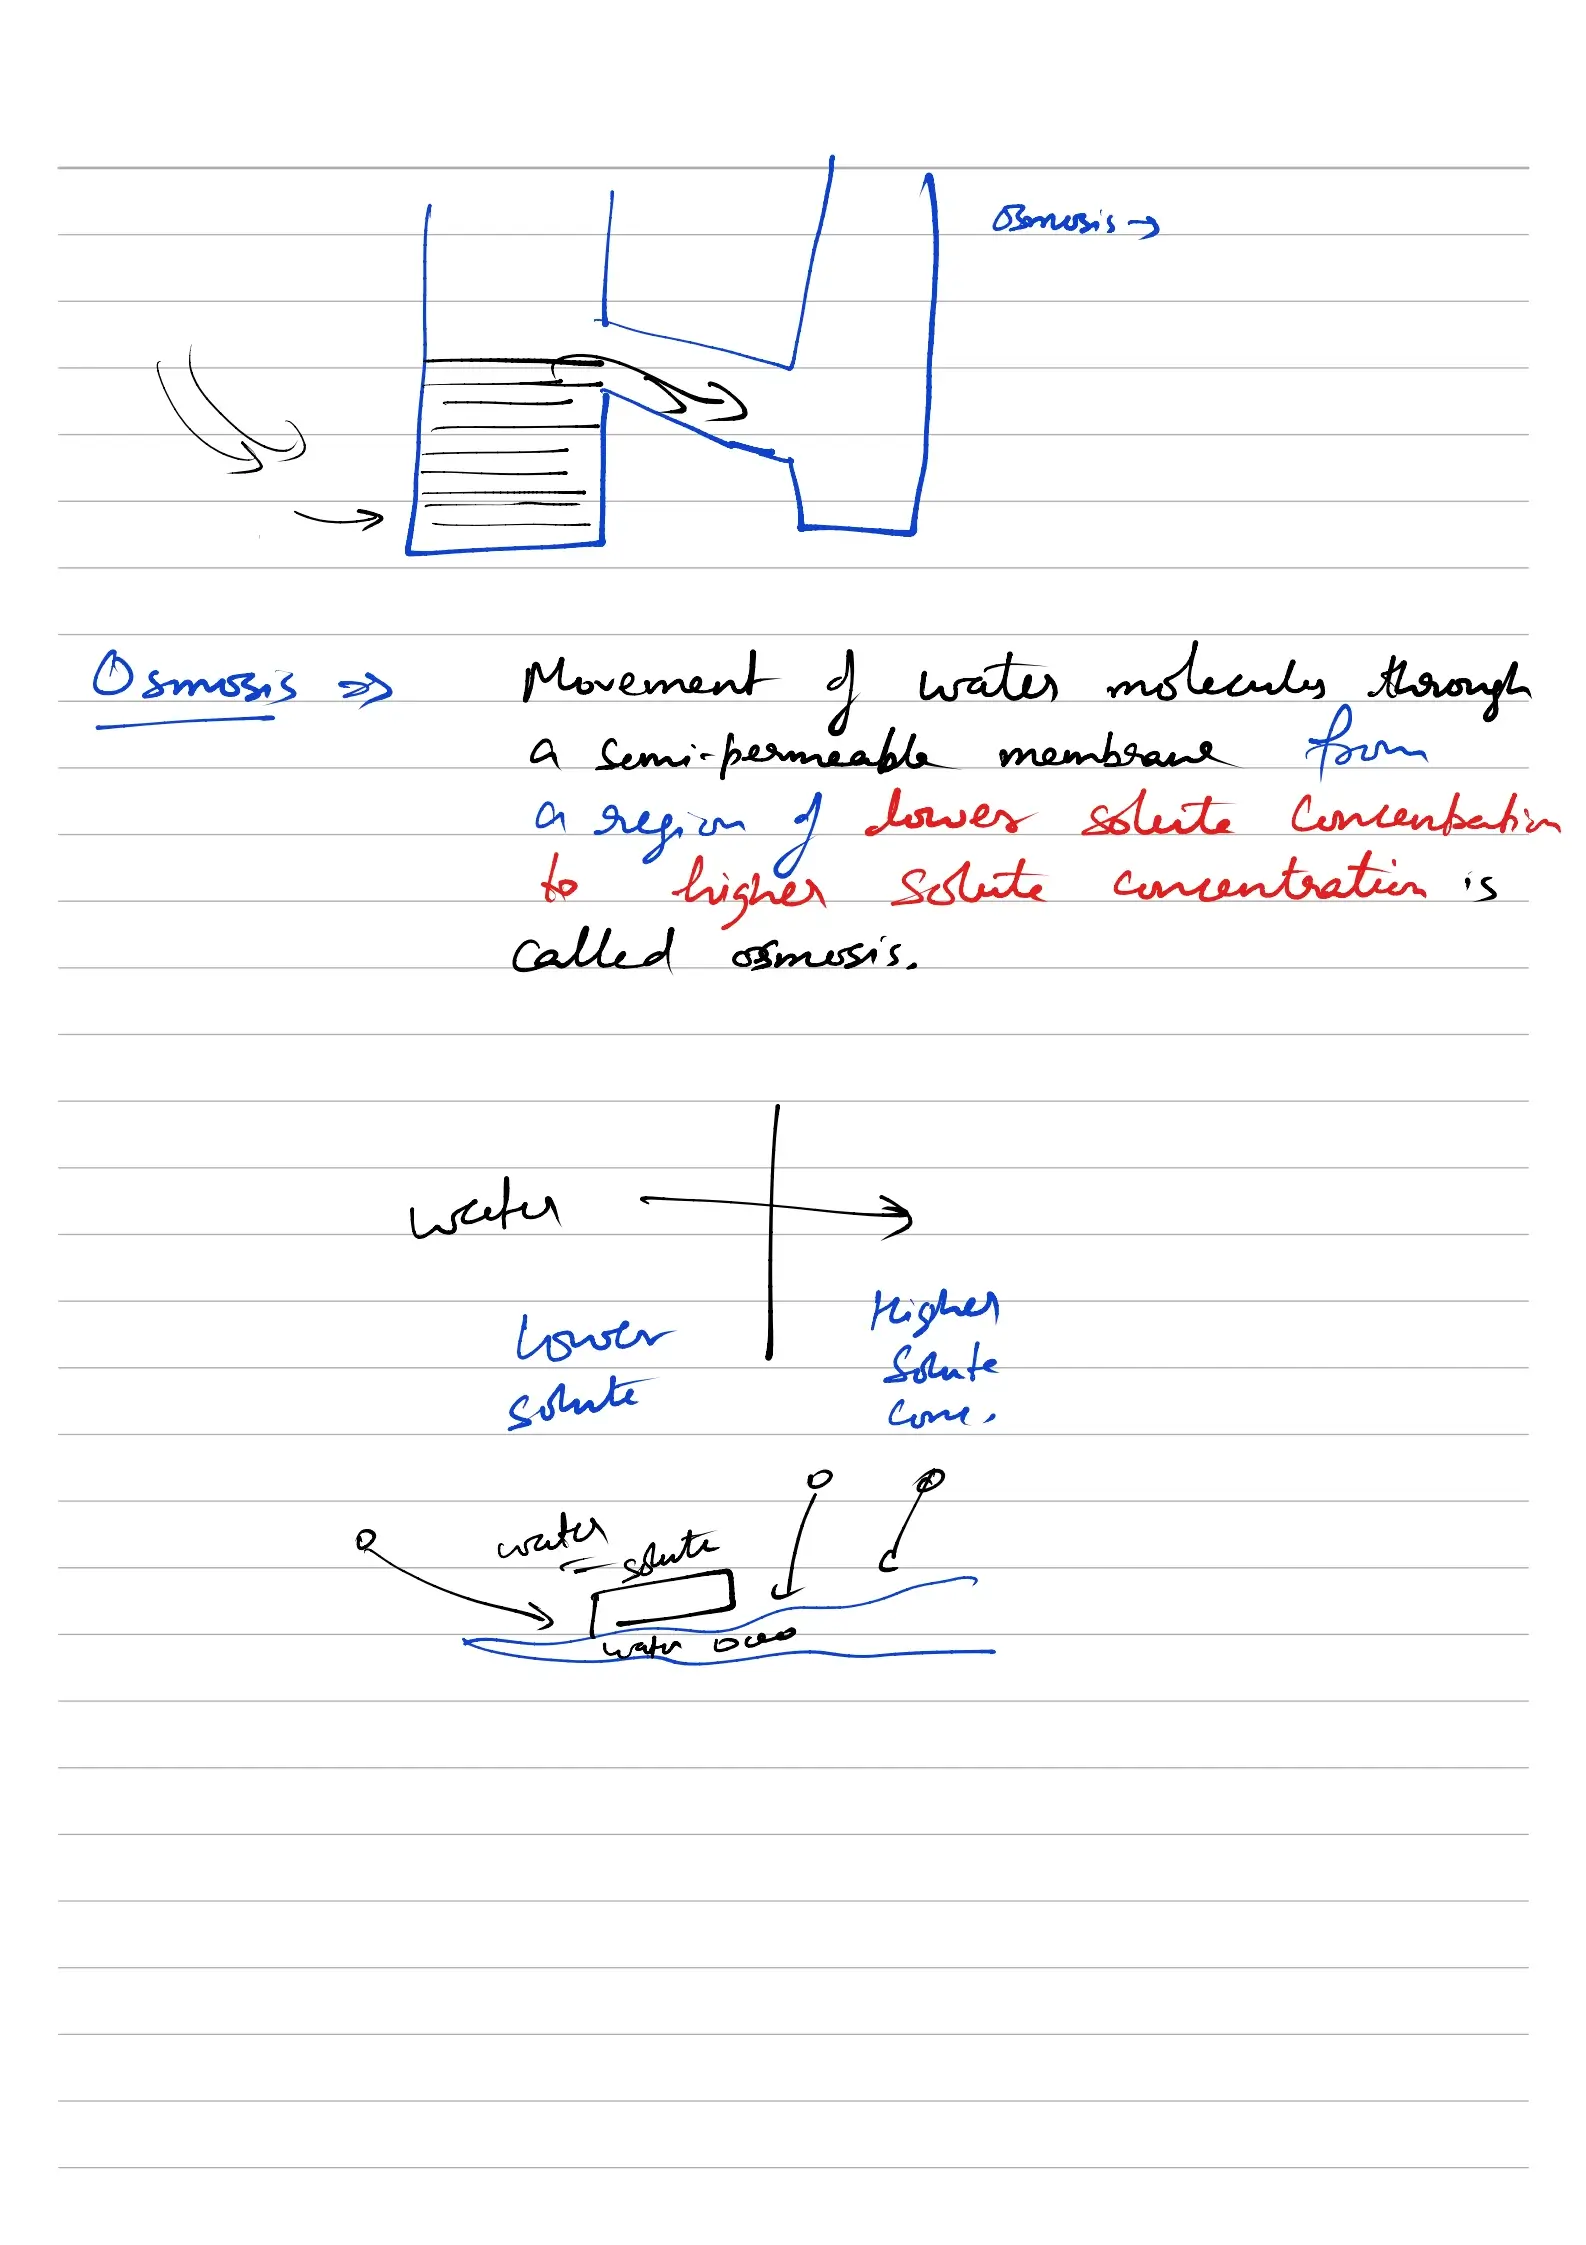 Osmosis →
Osmosis ⇒ Movement of water molecules through
a semi-permeable membrane from
a region of lower solute concentration
to higher solute concentration is
called osmosis.
water
Lower
solute
Higher
solute
conc.
water
solute
water